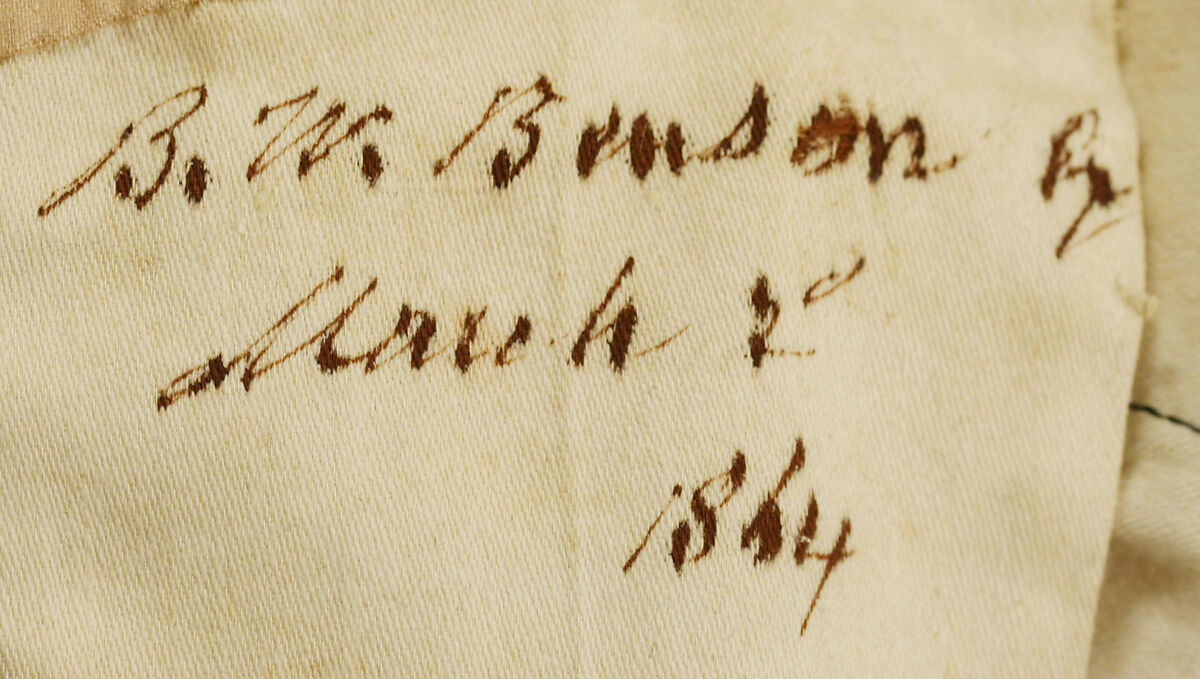 B. W. Benson Eq
March 2d
1864